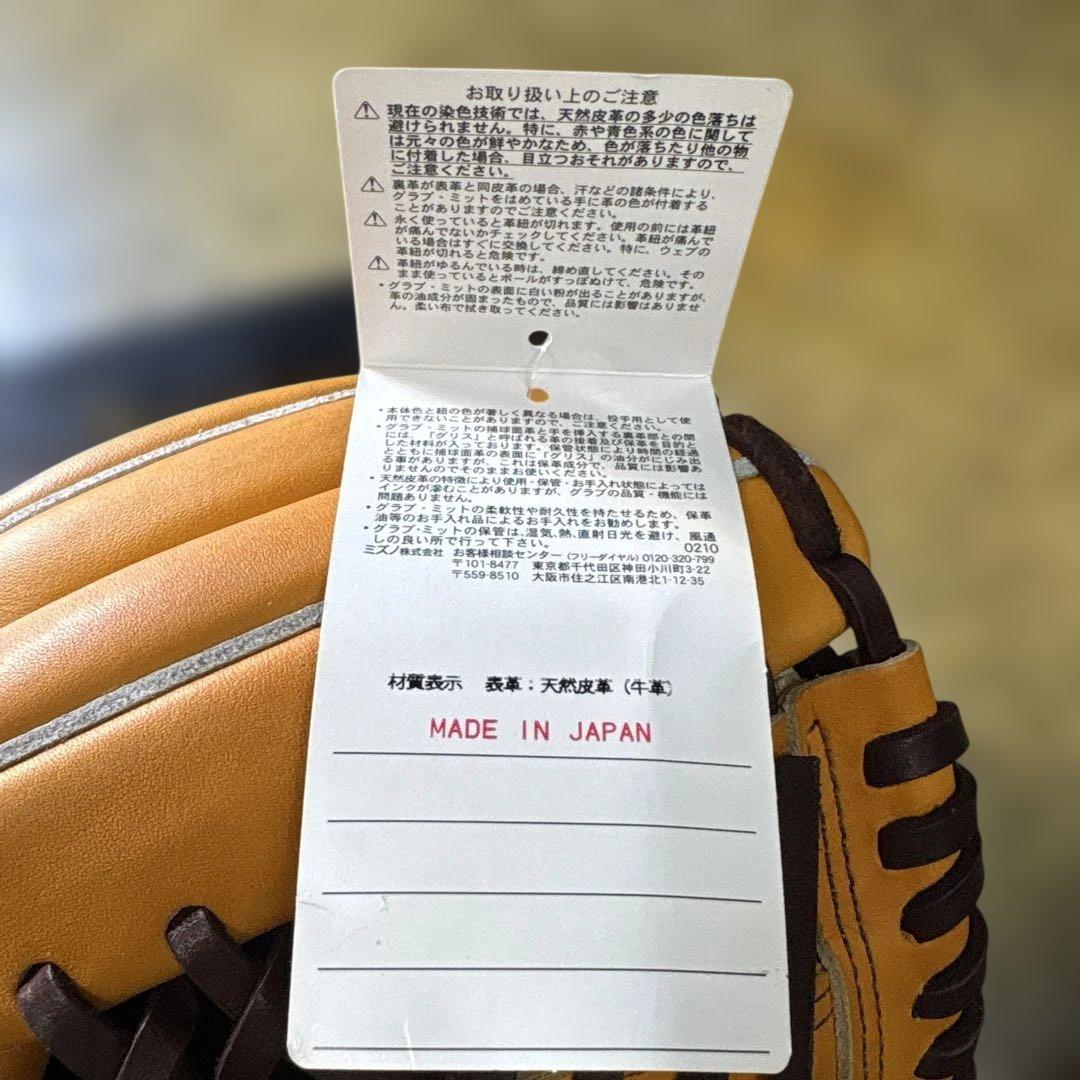 お取り扱い上のご注意
⚠現在の染色技術では、天然皮革の多少の色落ちは
避けられません。特に、赤や青色系の色に関して
は元々の色が鮮やかなため、色が落ちたり他の物
に付着した場合、目立つおそれがありますので、
ご注意ください。
⚠裏革が表革と同皮革の場合、汗などの諸条件により、
グラブ・ミットをはめている手に革の色が付着する
ことがありますのでご注意ください。
⚠永く使っていると革紐が切れます。使用の前には革紐
が痛んでないかチェックしてください。革紐が痛んで
いる場合はすぐに交換してください。特に、ウェブの
革紐が切れると危険です。
⚠革紐がゆるんでいる時は、締め直してください。その
まま使っているとボールがすっぽぬけて、危険です。
・グラブ・ミットの表面に白い粉が出ることがありますが、
革の油成分が固まったもので、品質には影響はありませ
ん。柔い布で拭き取ってください。
・本体色と紐の色が著しく異なる場合は、投手用として使
用できないことがありますので、ご注意ください。
・グラブ・ミットの捕球面革と手を挿入する裏革部との間
には、「グリス」と呼ばれる革の接着及び保革を目的と
した材料が入っております。保管状態により時間の経過
とともに捕球面革の表面に「グリス」の油分がにじみ出
る事がありますが、これは保革成分で、品質には影響あ
りませんのでそのままお使いください。
・天然皮革の特徴により使用・保管・お手入れ状態によっては
インクが滲むことがありますが、グラブの品質・機能には
問題ありません。
・グラブ・ミットの柔軟性や耐久性を持たせるため、保革
油等のお手入れ品によるお手入れをお勧めします。
・グラブ・ミットの保管は、湿気、熱、直射日光を避け、風通
しの良い所で行って下さい。 0210
ミズノ株式会社 お客様相談センター (フリーダイヤル) 0120-320-799
〒101-8477 東京都千代田区神田小川町3-22
〒559-8510 大阪市住之江区南港北1-12-35
材質表示 表革：天然皮革（牛革）
MADE IN JAPAN